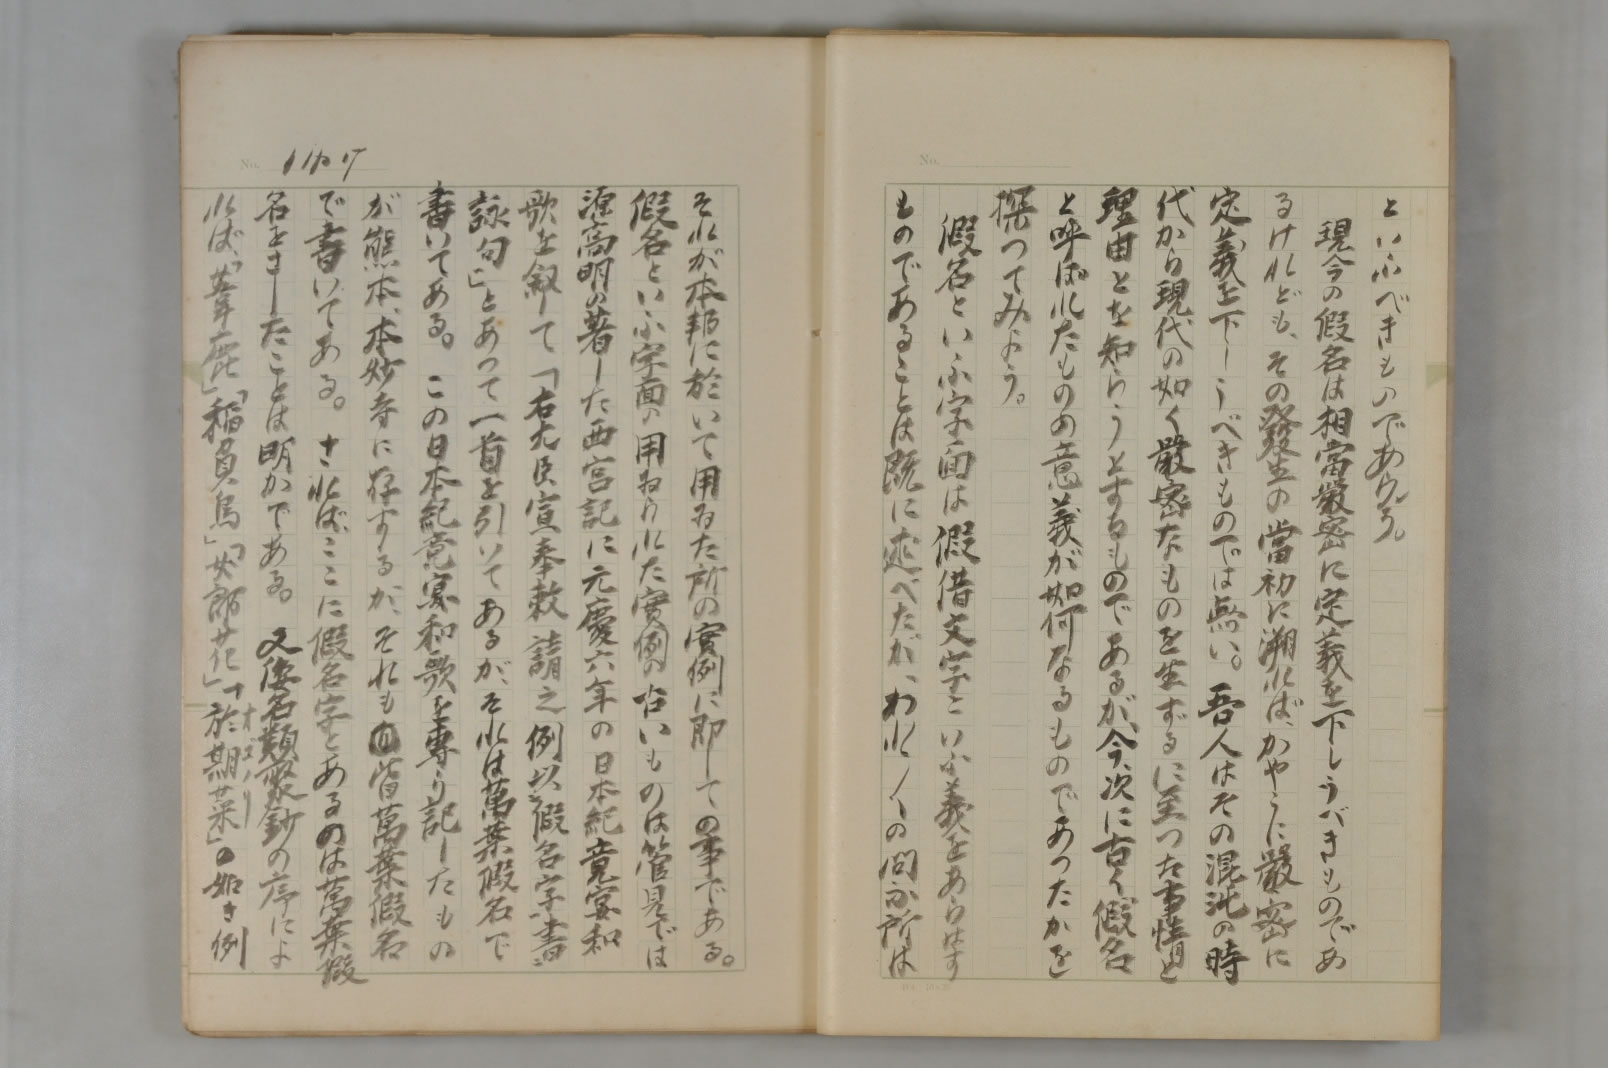 といふべきものであらう。
現今の假名は相當嚴密に定義を下しうべきものであ
るけれども、その發生の當初に溯れば、かやうに嚴密に
定義を下しうべきものでは無い。吾人はその混沌の時
代から現代の如く嚴密なものを生ずるに至つた事情と
理由とを知らうとするものであるが、今、次に古く假名
と呼ばれたものの意義が如何なるものであつたかを
探つてみよう。
假名といふ字面は假借文字といふ義をあらはす
ものであることは既に述べたが、われ〳〵の問ふ所は
No.
No. 1127
それが本邦に於いて用ゐた所の實例に即しての事である。
假名といふ字面の用ゐられた實例の古いものは管見では
源高明の著した西宮記に元慶六年の日本紀竟宴和
歌を叙して「右大臣宣奉敕請之例以假名字書
詠句」とあつて一首を引いてあるが、それは萬葉假名で
書いてある。この日本紀竟宴和歌を專ら記したもの
が熊本、本妙寺に存するが、それも皆萬葉假名
で書いてある。されば、ここに假名字とあるのは萬葉假
名をさしたことは明かである。又倭名類聚鈔の序によ
れば、「葦鹿」「稲負鳥」「女郎花」「於期菜」の如き例
オゴノリ